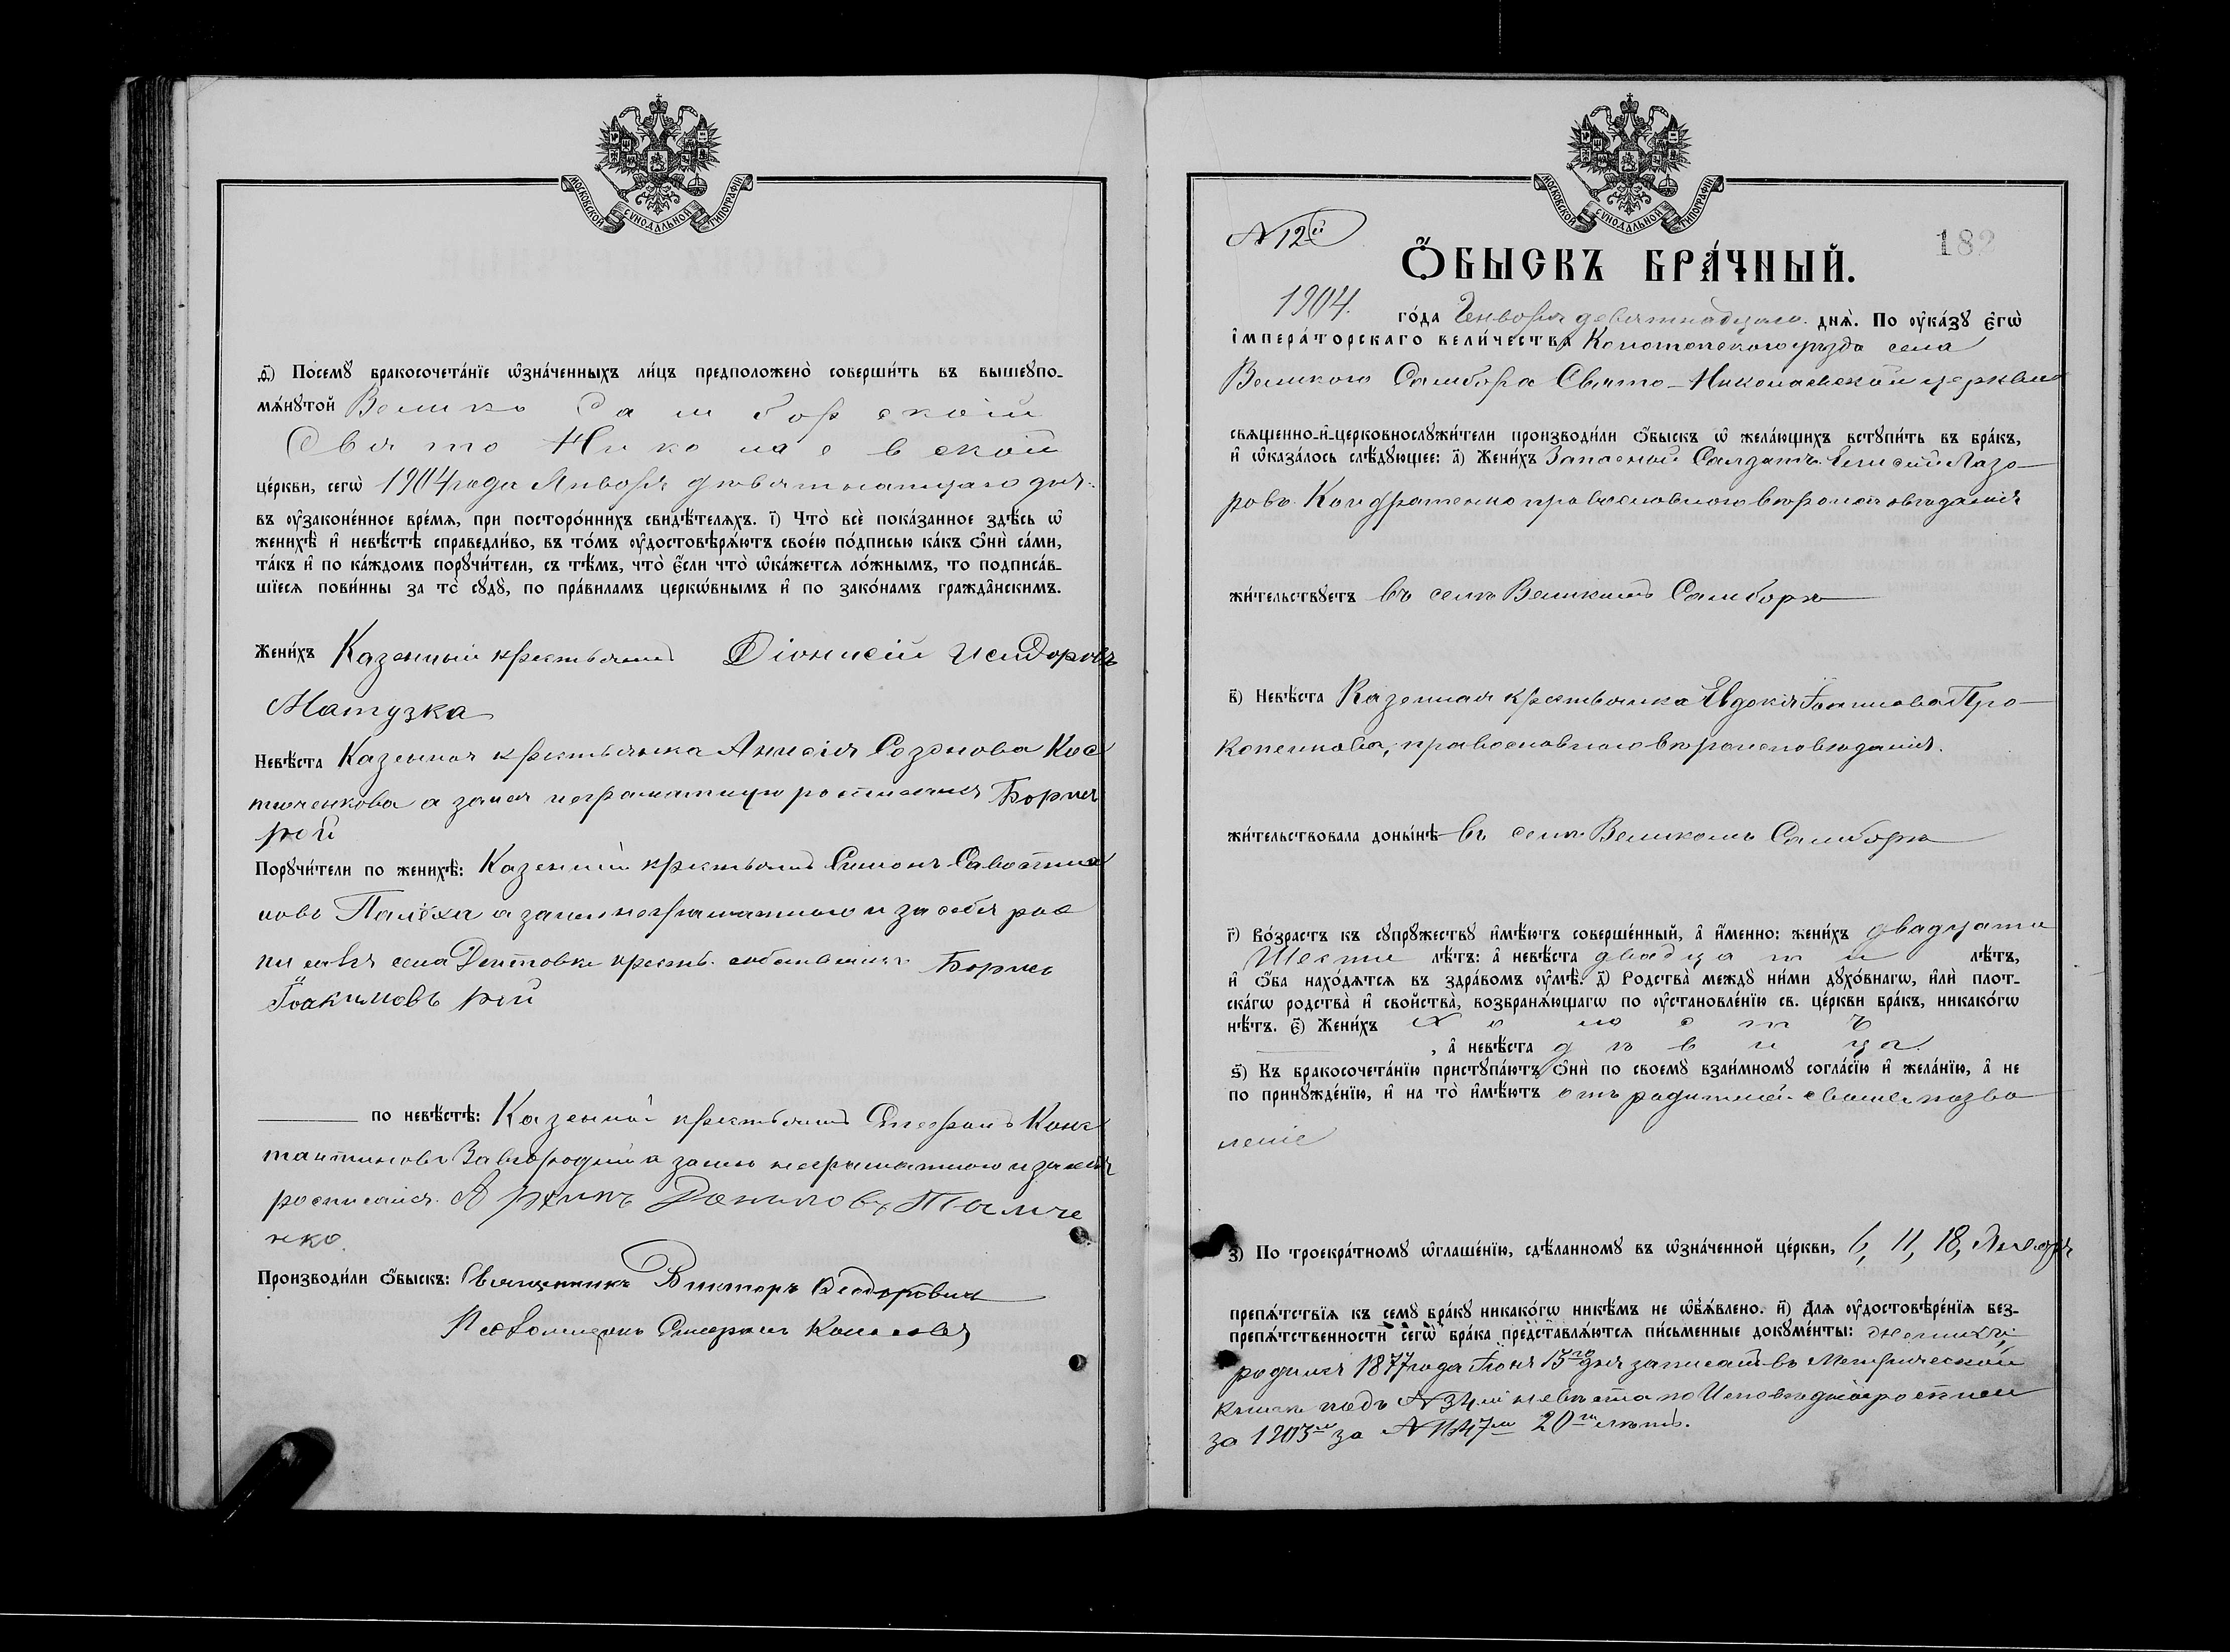 МОСКОВСКОЙ СѴНОДАЛЬНОЙ ТИПОГРАФІИ
ѳ҃) Посемꙋ̀ бракосочета́нїе ѡ҆зна́ченныхъ ли́цъ предположено̀ соверши́ть въ вышеꙋпо-
мѧ́нꙋтой Велико Самборской
Свято Николаевской
це́ркви, сегѡ̀ 1904 года Января девятнатцаго дня
въ ᲂу҆зако́ненное вре́мѧ, при посторо́ннихъ свидѣ́телѧхъ. і҃) Что̀ всѐ пока́занное здѣ́сь ѡ҆
женихѣ̀ и҆ невѣ́стѣ справедли́во, въ то́мъ ᲂу҆достовѣрѧ́ютъ свое́ю по́дписью ка́къ ѻ҆нѝ са́ми,
та́къ и҆ по ка́ждомъ порꙋчи́тели, съ тѣ́мъ, что̀ є҆́сли что̀ ѡ҆ка́жетсѧ ло́жнымъ, то подписа́в-
шїесѧ пови́нны за то̀ сꙋдꙋ̀, по пра́виламъ церкѡ́внымъ и҆ по зако́намъ гражда̂нскимъ.
Жени́хъ Казенный крестьянинъ Діонисій Исидоровъ
Матузка
Невѣ́ста Казенная крестьянка Анисія Созонова Кос
тюченкова а занея неграматную росписался Борис
рей
Порꙋчи́тели по женихѣ̀: Казенный крестьянинъ Симонъ Савостиа
новъ Палѣха а занего неграматного и засебя рос
писавъ села Дептовки крестья. собственникъ Борисъ
Іоакимовъ рей
по невѣ́стѣ: Казенной крестьянинъ Стефанъ Конс
тантиновъ Завгородній а занего неграматного и засебя
росписался Архипъ Даниловъ Ткаче
нко.
Производи́ли ѻ҆́быскъ: Священникъ Викторъ Ѳеодоровичъ
Псаломщикъ Стефанъ
МОСКОВСКОЙ СѴНОДАЛЬНОЙ ТИПОГРАФІИ
N 12й
182
Ѻ҆́БЫСКЪ БРА́ЧНЫЙ.
1904. го́да Генворя девятнадцаго днѧ̀. По ᲂу҆ка́зꙋ є҆гѡ̀
і҆мпера́торскаго вели́чества Конотопского уезда села
Великого Самбора Свято-Николаевской церкви
свѧщенно-и҆-церковнослꙋжи́тели производи́ли ѻ҆́быскъ ѡ҆ жела́ющихъ встꙋпи́ть въ бра́къ,
и҆ ѡ҆каза́лось слѣ́дꙋющее: а҃) Жени́хъ Запасный Салдатъ Елисий Лазо-
ровъ Кондратенко православного вероисповедания
жи́тельствꙋетъ въ селе Великомъ Самборе
в҃) Невѣ́ста Казенная крестьянка Евдокія Іоаннова Про-
копенкова, православного вероисповедания.
жи́тельствовала доны́нѣ въ селе Великомъ Самборе
г҃) Во́зрастъ къ сꙋпрꙋ́жествꙋ и҆мѣ́ютъ соверше́нный, а҆ и҆́менно: жени́хъ двадцати
Шести лѣ́тъ: а҆ невѣ́ста двадцати лѣ́тъ,
и҆ ѻ҆́ба нахо́дѧтсѧ въ здра́вомъ ᲂу҆мѣ̀. д҃) Родства̀ междꙋ ни́ми дꙋхо́внагѡ, и҆лѝ плот-
ска́гѡ родства̀ и҆ сво́йства, возбранѧ́ющагѡ по ᲂу҆становле́нїю св. це́ркви бра́къ, никако́гѡ
нѣ́тъ. є҃) Жени́хъ холостъ
, а҆ невѣ́ста девица
ѕ҃) Къ бракосочета́нїю пристꙋпа́ютъ ѻ҆нѝ по своемꙋ̀ взаи́мномꙋ согла́сїю и҆ жела́нїю, а҆ не
по принꙋжде́нїю, и҆ на то̀ и҆мѣ́ютъ отъ родителей своихъ позво
леніе
з҃) По троекра́тномꙋ ѡ҆глаше́нїю, сдѣ́ланномꙋ въ ѡ҆зна́ченной це́ркви, 6, 11, 18, Января
препѧ́тствїѧ къ семꙋ̀ бра́кꙋ никако́гѡ никѣ́мъ не ѡ҆б̾ѧ́влено. и҃) Длѧ ᲂу҆достовѣре́нїѧ без-
препѧ́тственности сегѡ̀ бра́ка представлѧ́ютсѧ пи́сьменные докꙋме́нты: Женихъ
родился 1877 года Іюня 15го дня записанъ въ Метрической
книге подъ N 34м невеста по Исповедной росписи
за 1903й за N 1147м 20ти летъ.